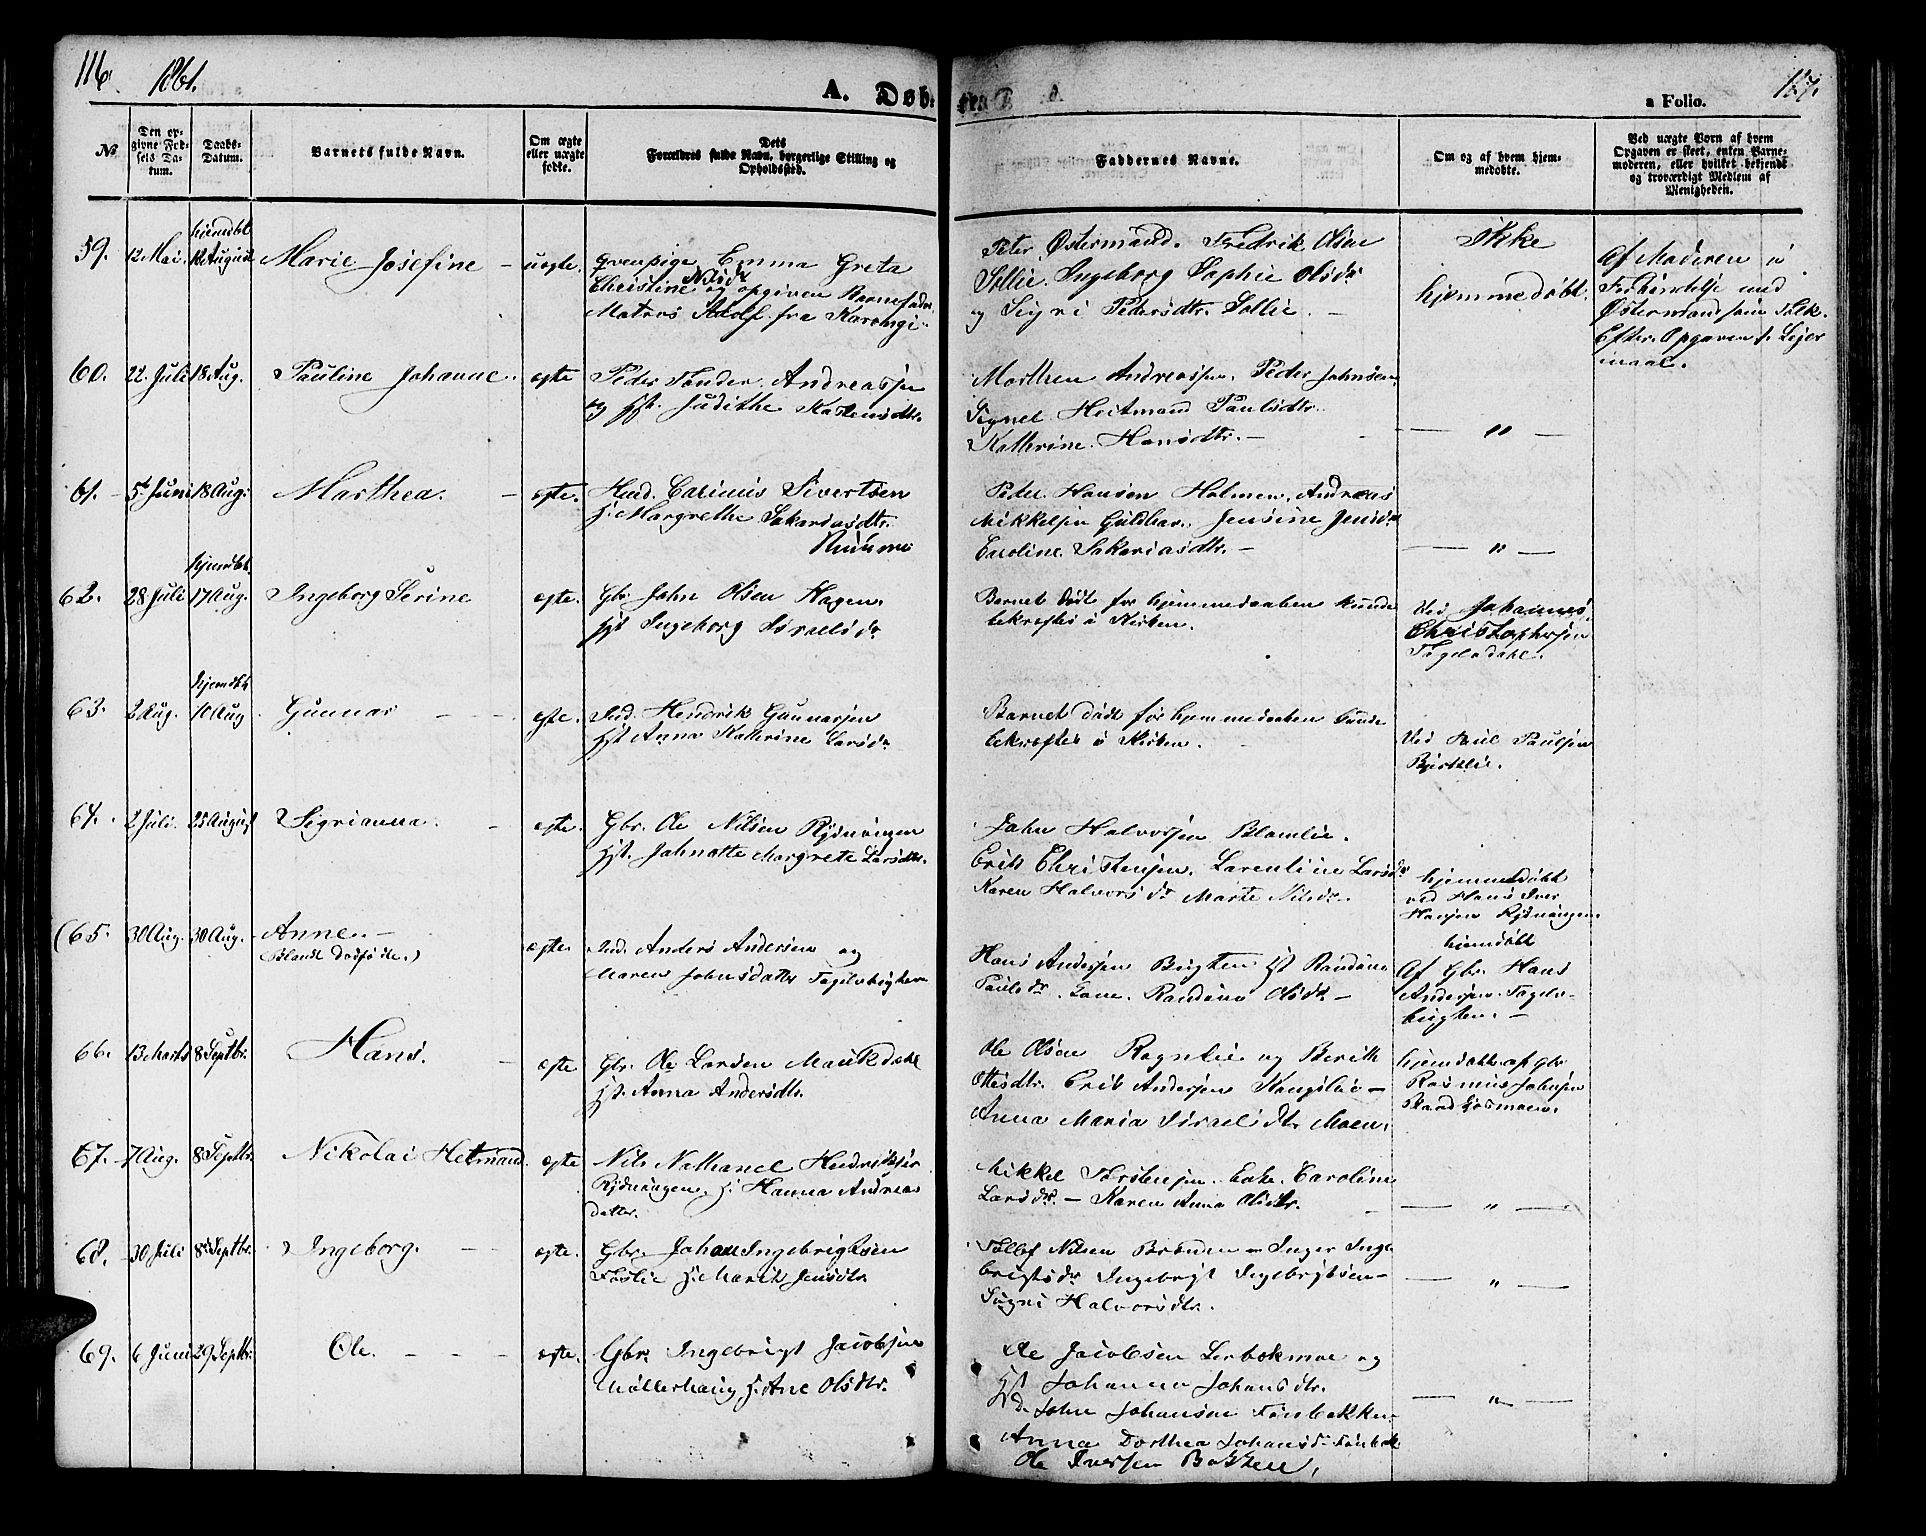 116. 1861.
A. Døb
a Folio.
117.
No
Den opgivne Fødsels Datum.
Daabs-Datum.
Barnets fulde Navn.
Om ægte eller uægte fødte.
Dets Forældres fulde Navn, borgerlige Stilling og Opholdssted.
Faddernes Navne.
Om og af hvem hjemmedøbte.
Ved uægte Børn af hvem Opgaven er skeet, enten Barnemoderen, eller hvilket bekjendt og troværdigt Medlem af Menigheden.
59. 12 Mai. 18 August Marie Josefine - uægte.
Emma Greta
Christine Nilsdr og opgiven Barnefader
Matros Adolf fra Karungi
Peter Østermand. Fredrik Olsen
Sollie. Ingeborg Sophie Olsdr
og Sigri Pedersdtr. Sollie. -
Ikke
hjemmedøbt.
Af Moderen i
Forbindelse med
Østermand som Tolk.
Efter Opgaven 1. Leier
maal.
60. 22. Juli 18 Aug. Pauline Johanne. ægte
Peder Andreassen
og Hst. Judithe
Morthen Andreassen. Peder Johnsen
Signel Heitmand Paulsdtr.
Kathrine Hansdtr. -
— " —
61. 5 Juni 18 Aug. Marthea. - ægte.
Huusm. Carinius Sivertsen
H. Margrethe Sakariasdtr.
Peder Hansen Holmen. Andreas
Mikkelsen Guldhav. Jensine Jensdr
Caroline Sakariasdtr. -
— " —
hjemdbt.
62. 28 Juli 17 Aug. Ingeborg Serine ægte.
Gbr John Olsen Hagen.
Hst Ingeborg Israelsdr
Barnet dødt før hjemmedaaben kunde
bekræftes i Kirken.
Ved Johannes
Christophersen
63. 2 Aug. 10 Aug Gunnar - - ægte.
Ind. Hendrik Gunnarsen
Hst Anna Kathrine Larsdr
Barnet dødt før hjemmedaaben kunde
bekræftes i Kirken.
Ved Paul Paulsen
64. 2 Juli. 25 August Sigrianna. - ægte.
Gbr. Ole Nilsen Rydningen
Hst. Johnette Margrete Larsdtr.
John Halvorsen Blomlie.
Erik Christensen. Larentine Larsdr
Karen Halvorsdr Marte Nilsdr.
hjemmedøbt
ved Hans Iver
Hansen Rydningen
(65. 30 Aug. 30 Aug. Anne. -
ægte.
Ind. Anders Andersen og
Maren Johnsdatter
Hans Andersen Bugten Hst Randine
Paulsdr. Lane. Randine Olsdr -
hjemdøbt
Af Gbr. Hans
Andersen
bugten. -
66. 13 Marts 8 Septbr. Hans. - ægte
Gbr. Ole Larsen Maukdahl
Hst. Anna Andersdtr.
Ole Olsen Rognlie og Berith
Ottesdtr. Erik Andersen Kongslie -
Anna Maria Israelsdtr Moen.
hjemdøbt af Gbr
Rasmus Johnsen
67. 7 Aug. 8 Septbr. Nikolai Hetmand ægte
Nils Nathanel Hendriksen
Rydningen. H. Hanna Andrea
datter.
Mikkel Torstensen. Enke Caroline
Larsdr. - Karen Anna Olsdtr.
— " —
68. 30 Juli 8 Septbr. Ingeborg. - ægte.
Gbr. Johan Ingebrigtsen
Foslie H. Marit Jensdtr
Tollef Nilsen Brenden - Inger Inge
brigtsdr Ingebrigt Ingebrigtsen -
Sigri Halvorsdtr.
— " —
69. 6 Juni 29 Septbr. Ole. - - - ægte.
Gbr. Ingebrigt Jacobsen
Møllerhaug H. Ane Olsdtr.
Ole Jacobsen Lerbekmoe og
Hst Johanna Johansdtr.
John Johansen Fønbakken
Anna Dorthea Johansdr
Ole Iversen Bakken.
— " —